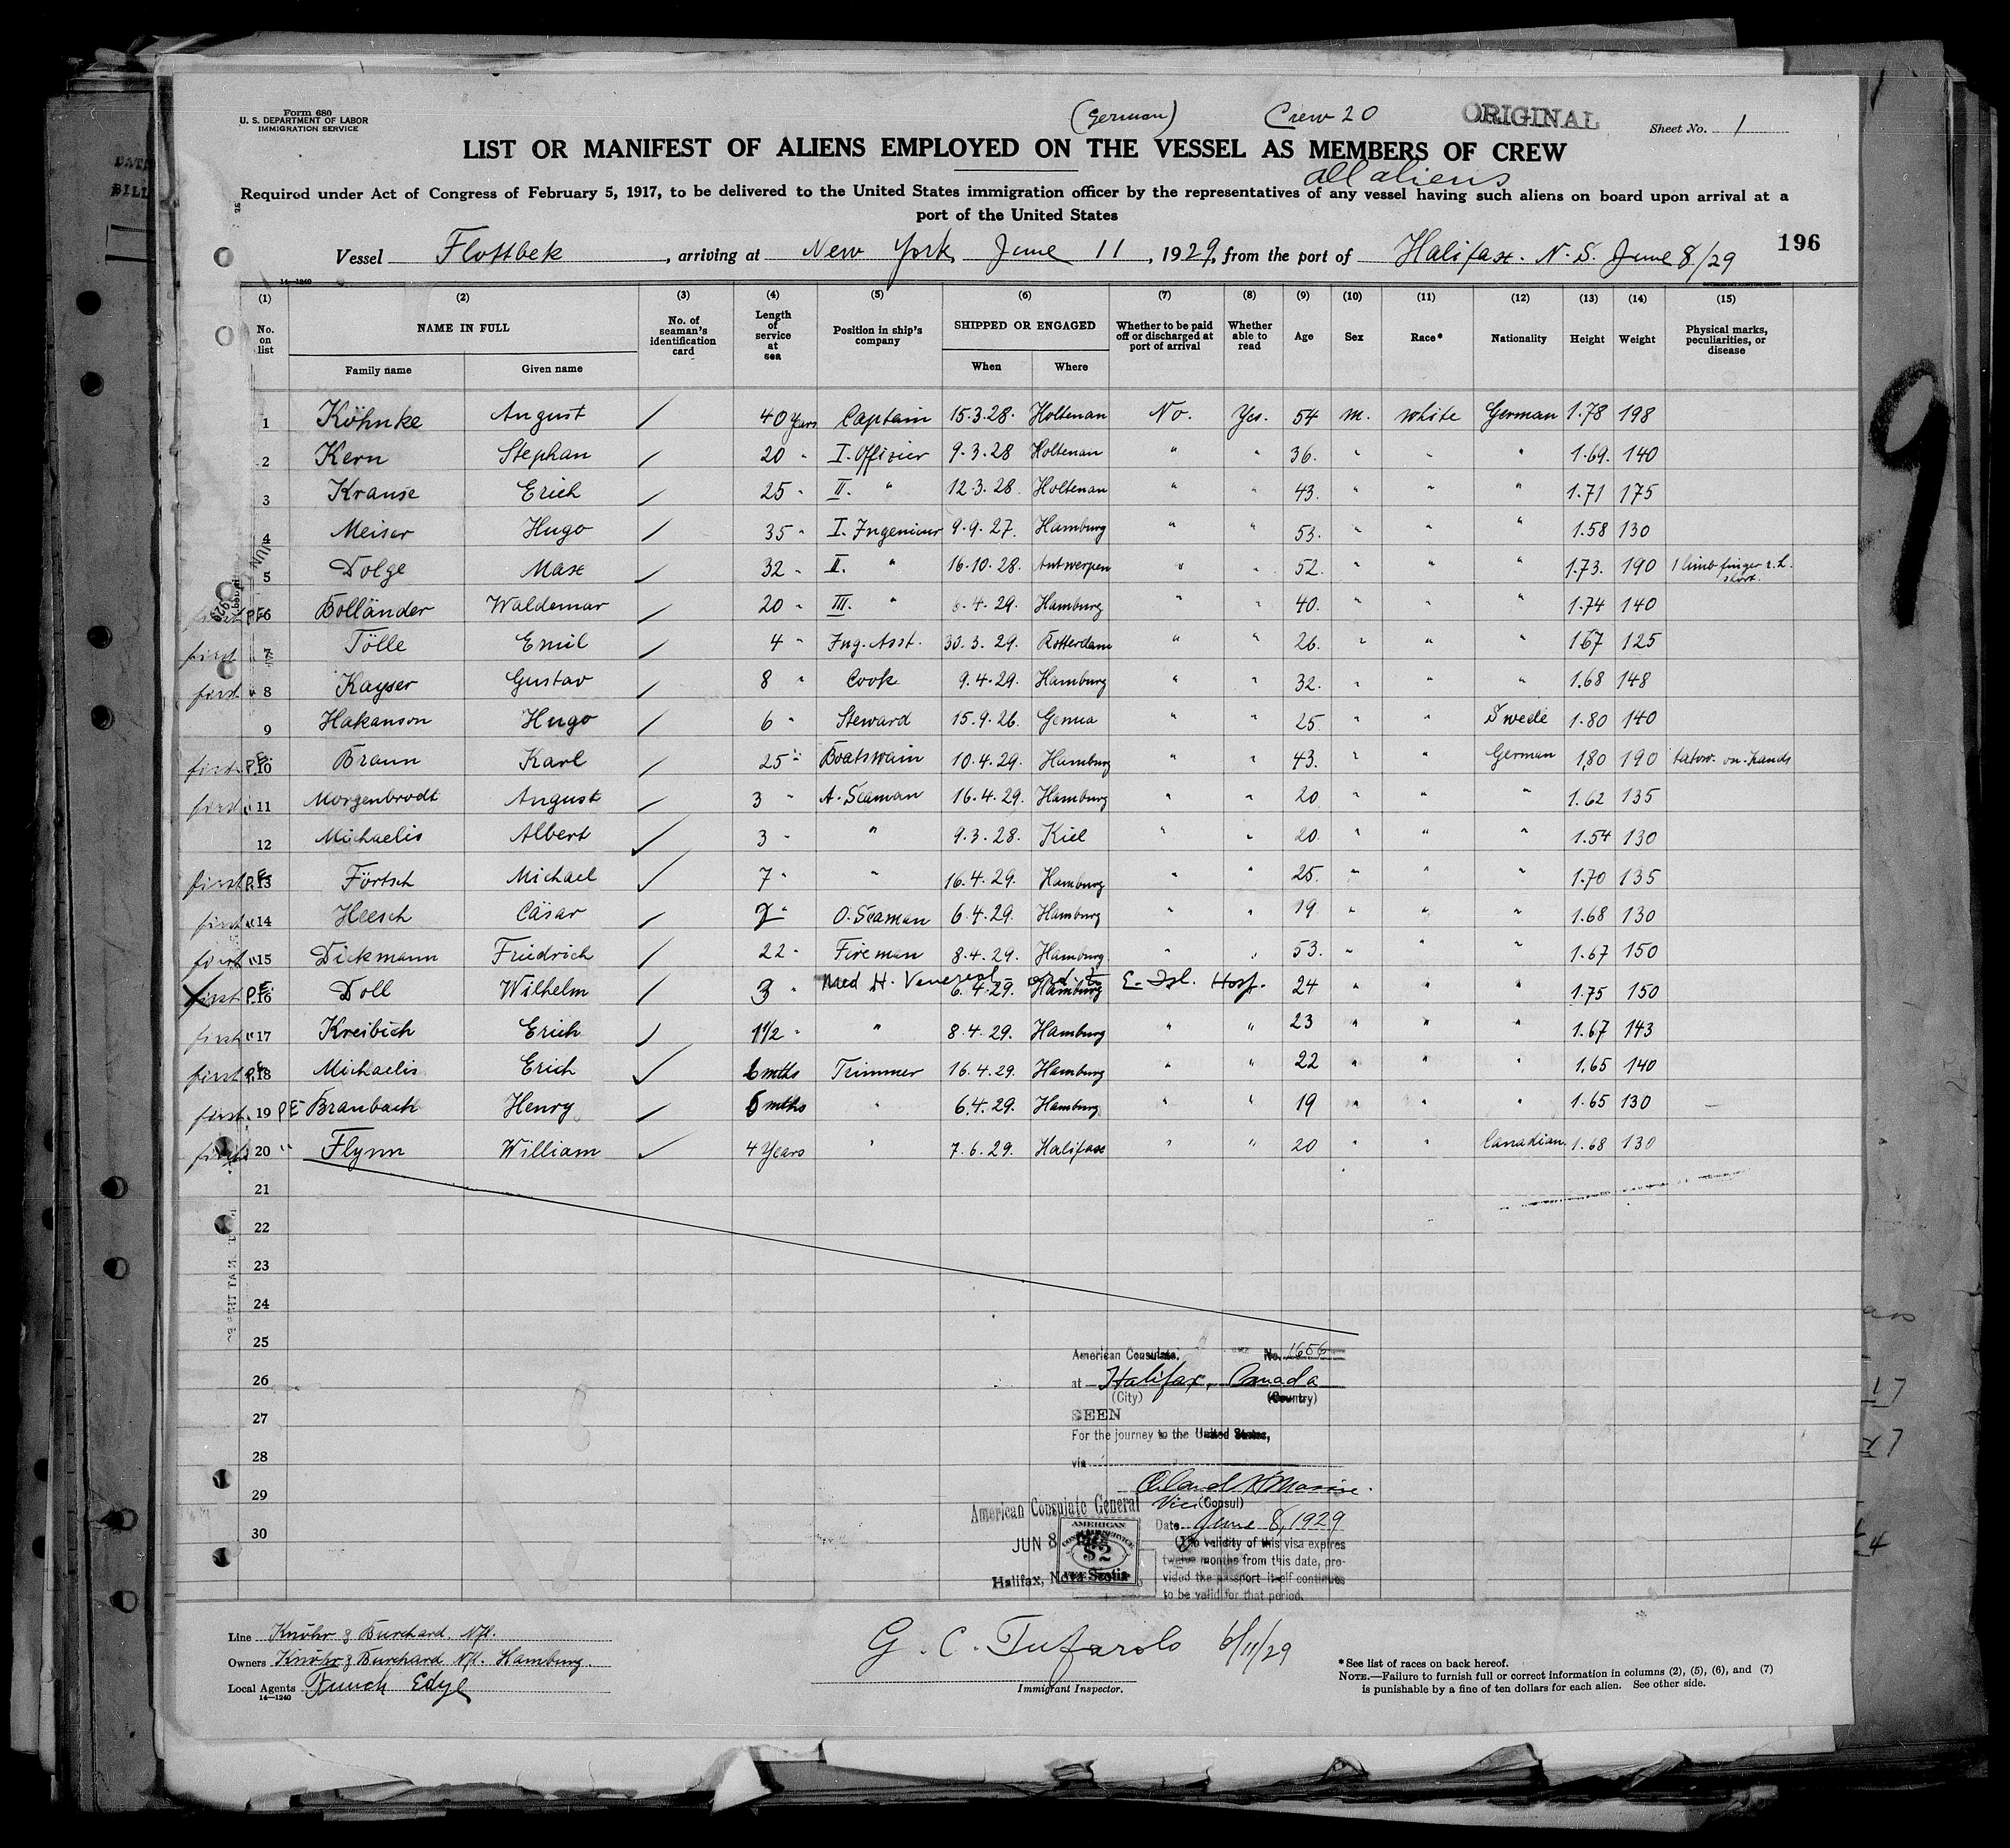 Form 680
U. S. DEPARTMENT OF LABOR
IMMIGRATION SERVICE
(German) Crew 20 ORIGINAL Sheet No. 1
LIST OR MANIFEST OF ALIENS EMPLOYED ON THE VESSEL AS MEMBERS OF CREW
all aliens
Required under Act of Congress of February 5, 1917, to be delivered to the United States immigration officer by the representatives of any vessel having such aliens on board upon arrival at a
port of the United States
196
Vessel Flottbek, arriving at New York, June 11, 1929, from the port of Halifax. N. S. June 8/29
14—1240
(1) (2) (3) (4) (5) (6) (7) (8) (9) (10) (11) (12) (13) (14) (15)
No. on list NAME IN FULL Family name Given name No. of seaman's identification card Length of service at sea Position in ship's company SHIPPED OR ENGAGED When Where Whether to be paid off or discharged at port of arrival Whether able to read Age Sex Race* Nationality Height Weight Physical marks, peculiarities, or disease
1 Köhnke August / 40 years Captain 15.3.28. Holtenau No. Yes. 54 m. white German 1.78 198
2 Kern Stephan / 20 " I. Offizier 9.3.28 Holtenau " " 36. " " " 1.69. 140
3 Krause Erich / 25 " II. " 12.3.28. Holtenau " " 43. " " " 1.71 175
4 Meiser Hugo / 35 " I. Ingenieur 9.9.27. Hamburg " " 53. " " " 1.58 130
5 Dolge Max / 32 " II. " 16.10.28. Antwerpen " " 52. " " " 1.73. 190 1 limb finger r. h. short.
first P.E. 6 Bolländer Waldemar / 20 " III. " 6.4.29. Hamburg " " 40. " " " 1.74 140
first " 7 Tölle Emil / 4 " Ing. Asst. 30.3.29. Rotterdam " " 26. " " " 1.67 125
first " 8 Kayser Gustav / 8 " Cook 9.4.29. Hamburg " " 32. " " " 1.68 148
9 Hakanson Hugo / 6 " Steward 15.9.26. Genua " " 25 " " Swede 1.80 140
first P.E. 10 Braun Karl / 25 " Boatswain 10.4.29. Hamburg " " 43. " " German 1.80 190 tatow. on hands
first " 11 Morgenbrodt August / 3 " A. Seaman 16.4.29. Hamburg " " 20 " " " 1.62 135
12 Michaelis Albert / 3 " " 9.3.28. Kiel " " 20. " " " 1.54 130
first P.E. 13 Förtsch Michael / 7 " " 16.4.29. Hamburg " " 25. " " " 1.70 135
first " 14 Heesch Cäsar / 2 " O. Seaman 6.4.29. Hamburg " " 19 " " " 1.68 130
first " 15 Dickmann Friedrich / 22 " Fireman 8.4.29. Hamburg " " 53. " " " 1.67 150
Med H. Venereal ord. to E. Isl. Hosp.
X first P.E. 16 Doll Wilhelm / 3 " 6.4.29. Hamburg 24 " " " 1.75 150
first " 17 Kreibich Erich / 1 1/2 " " 8.4.29. Hamburg " " 23 " " " 1.67 143
first P.E. 18 Michaelis Erich / 6 mths Trimmer 16.4.29. Hamburg " " 22 " " " 1.65 140
first 19 PE Braubach Henry / 6 mths " 6.4.29. Hamburg " " 19 " " " 1.65 130
first 20 " Flynn William / 4 Years " 7.6.29. Halifax " " 20 " " Canadian. 1.68 130
21
22
23
24
25
26
27
28
29
30
American Consulate, No. 1656
at Halifax, Canada
(City) (Country)
SEEN
For the journey to the United States,
via
Vice (Consul)
American Consulate General
Date June 8, 1929
JUN 8
AMERICAN
$2
Halifax, Nova Scotia
The validity of this visa expires
twelve months from this date, pro-
vided the passport itself continues
to be valid for that period.
Line Knöhr & Burchard Nfl.
Owners Knöhr & Burchard Nfl. Hamburg.
Local Agents Funch Edye
14—1240
G. C. Tufarolo 6/11/29
Immigrant Inspector.
*See list of races on back hereof.
NOTE.—Failure to furnish full or correct information in columns (2), (5), (6), and (7)
is punishable by a fine of ten dollars for each alien. See other side.
9